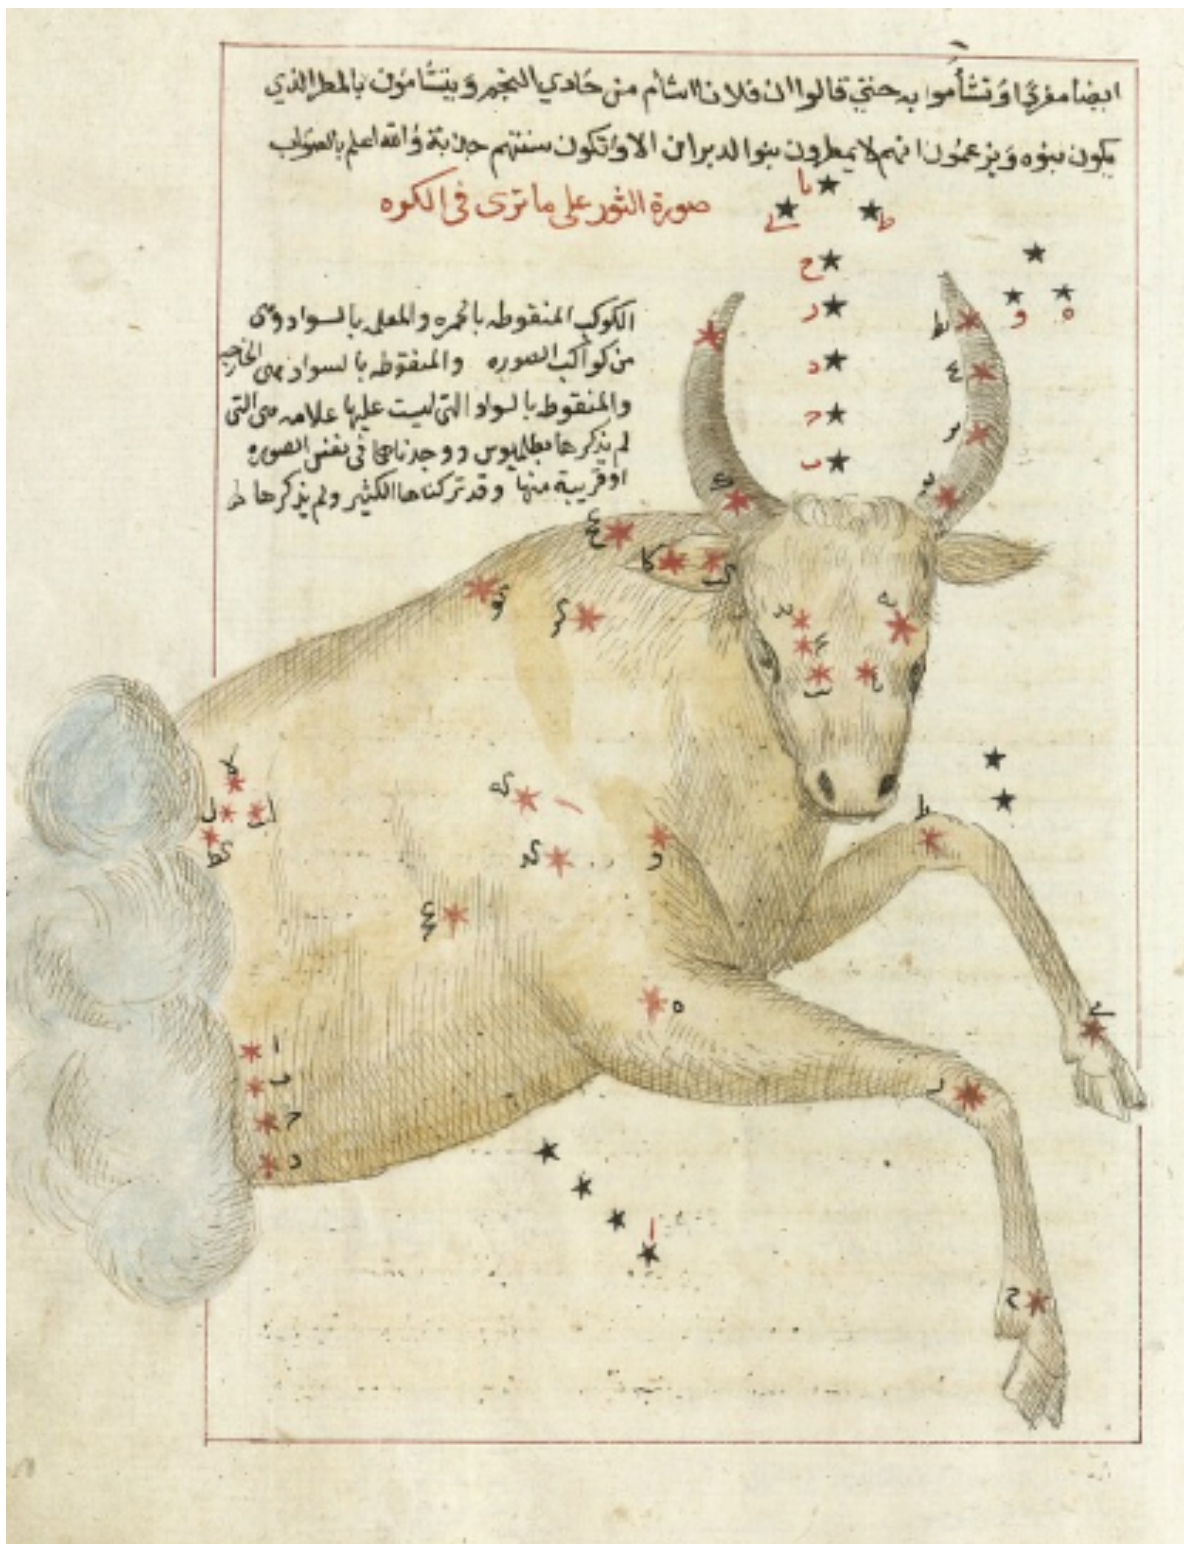 ايضا مفردا وتشأموا به حتي قالوا ان فلانا اشأم من حادي النجم ويتشأمون بالمطر الذي
يكون بنوه ويزعمون انهم لا يمطرون بنوا لدبران الا وتكون سنتهم جدبة والله اعلم بالصواب
صورة الثور على ما ترى فى الكره
الكوكب المنقوطه بالحمره والمعلم بالسواد وهى
من كواكب الصوره والمنقوطه بالسواد هى الخارجه
والمنقوطه بالسواد التى ليست عليها علامه هى التى
لم يذكرها بطلميوس ووجدناها فى نفس الصوره
او قريبة منها وقد تركنا ها الكثير ولم يذكرها